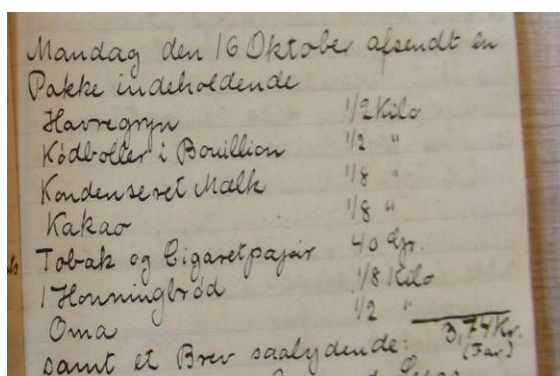 Mandag den 16 Oktober afsendt en
Pakke indeholdende
Havregryn 1/2 Kilo
Ködboller i Bouillion 1/2 "
Kondenseret Mælk 1/8 "
Kakao 1/8 "
Tobak og Cigaretpapir 40 Gr.
1 Honningbröd 1/8 Kilo
Oma 1/2 "
3,74 Kr.
samt et Brev saalydende: (Far)